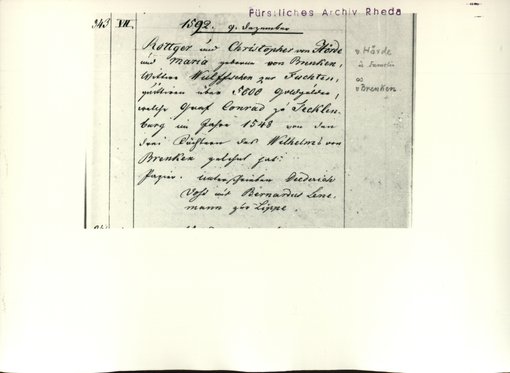 Fürstliches Archiv Rheda
343 VII. 1592. 9. Dezember
Rottger und Christopher von Hörde
und Maria geborene von Brenken,
Wittwe zur
quittiren über 5000 Goldgulden,
welche Graf Conrad zu Tecklen-
burg im Jahre 1548 von den
drei Töchtern des Wilhelms von
Brenken geliehen hat.
Papier. Unterschrieben Diederich
Voss und Bernardus Lene-
mann zur Lippe.
v Hörde
u Familie
∞
v Brenken